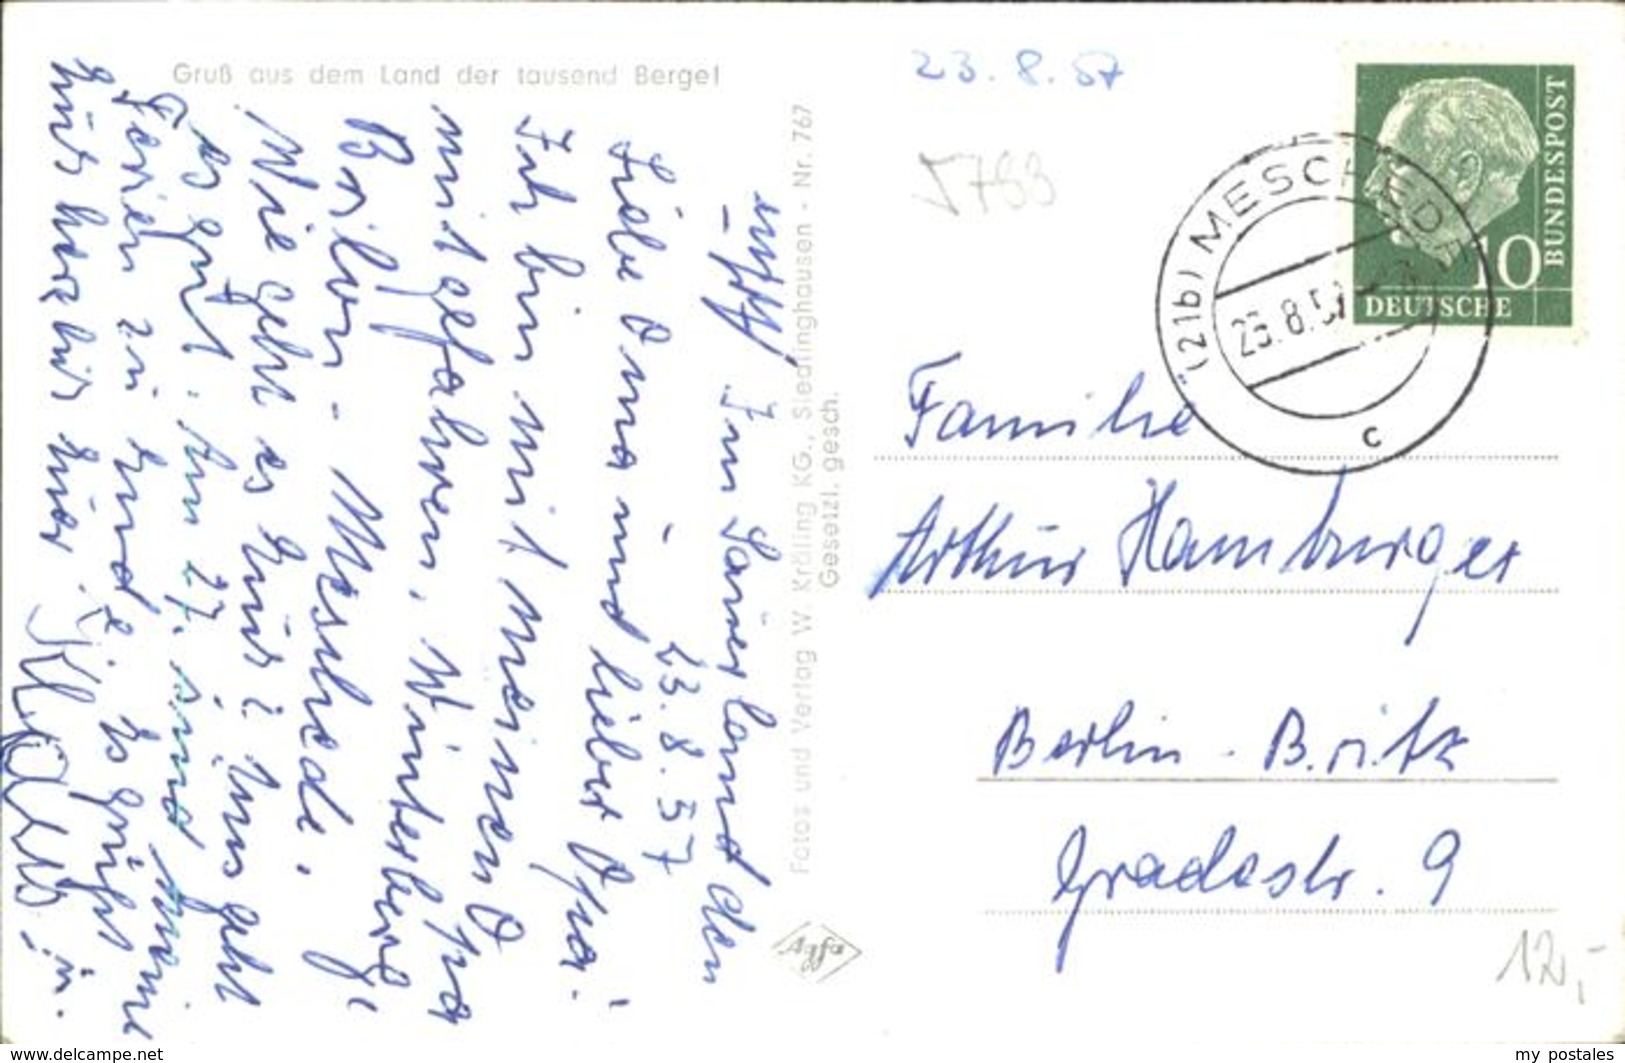 Gruß aus dem Land der tausend Berge!
Im Sauerland den
23.8.57
Liebe Oma und lieber Opa!
Ich bin mit meinen Opa
mitgefahren, Winterberg,
Brilon - Meschede.
Wie geht es Euch? Uns geht
es gut. Am 27. sind meine
Ferien zu Ende. Es grüßt
Euch herzlich Euer Klaus u.
Fotos und Verlag W. Kräling KG., Siedlinghausen - Nr. 767
Gesetzl. gesch.
Agfa
23.8.57
5788
(21b) MESCHEDE
23.8.57
c
10
DEUTSCHE
BUNDESPOST
Familie
Arthur Hamburger
Berlin-Britz
Gradestr. 9
12,-
www.delcampe.net
my postales